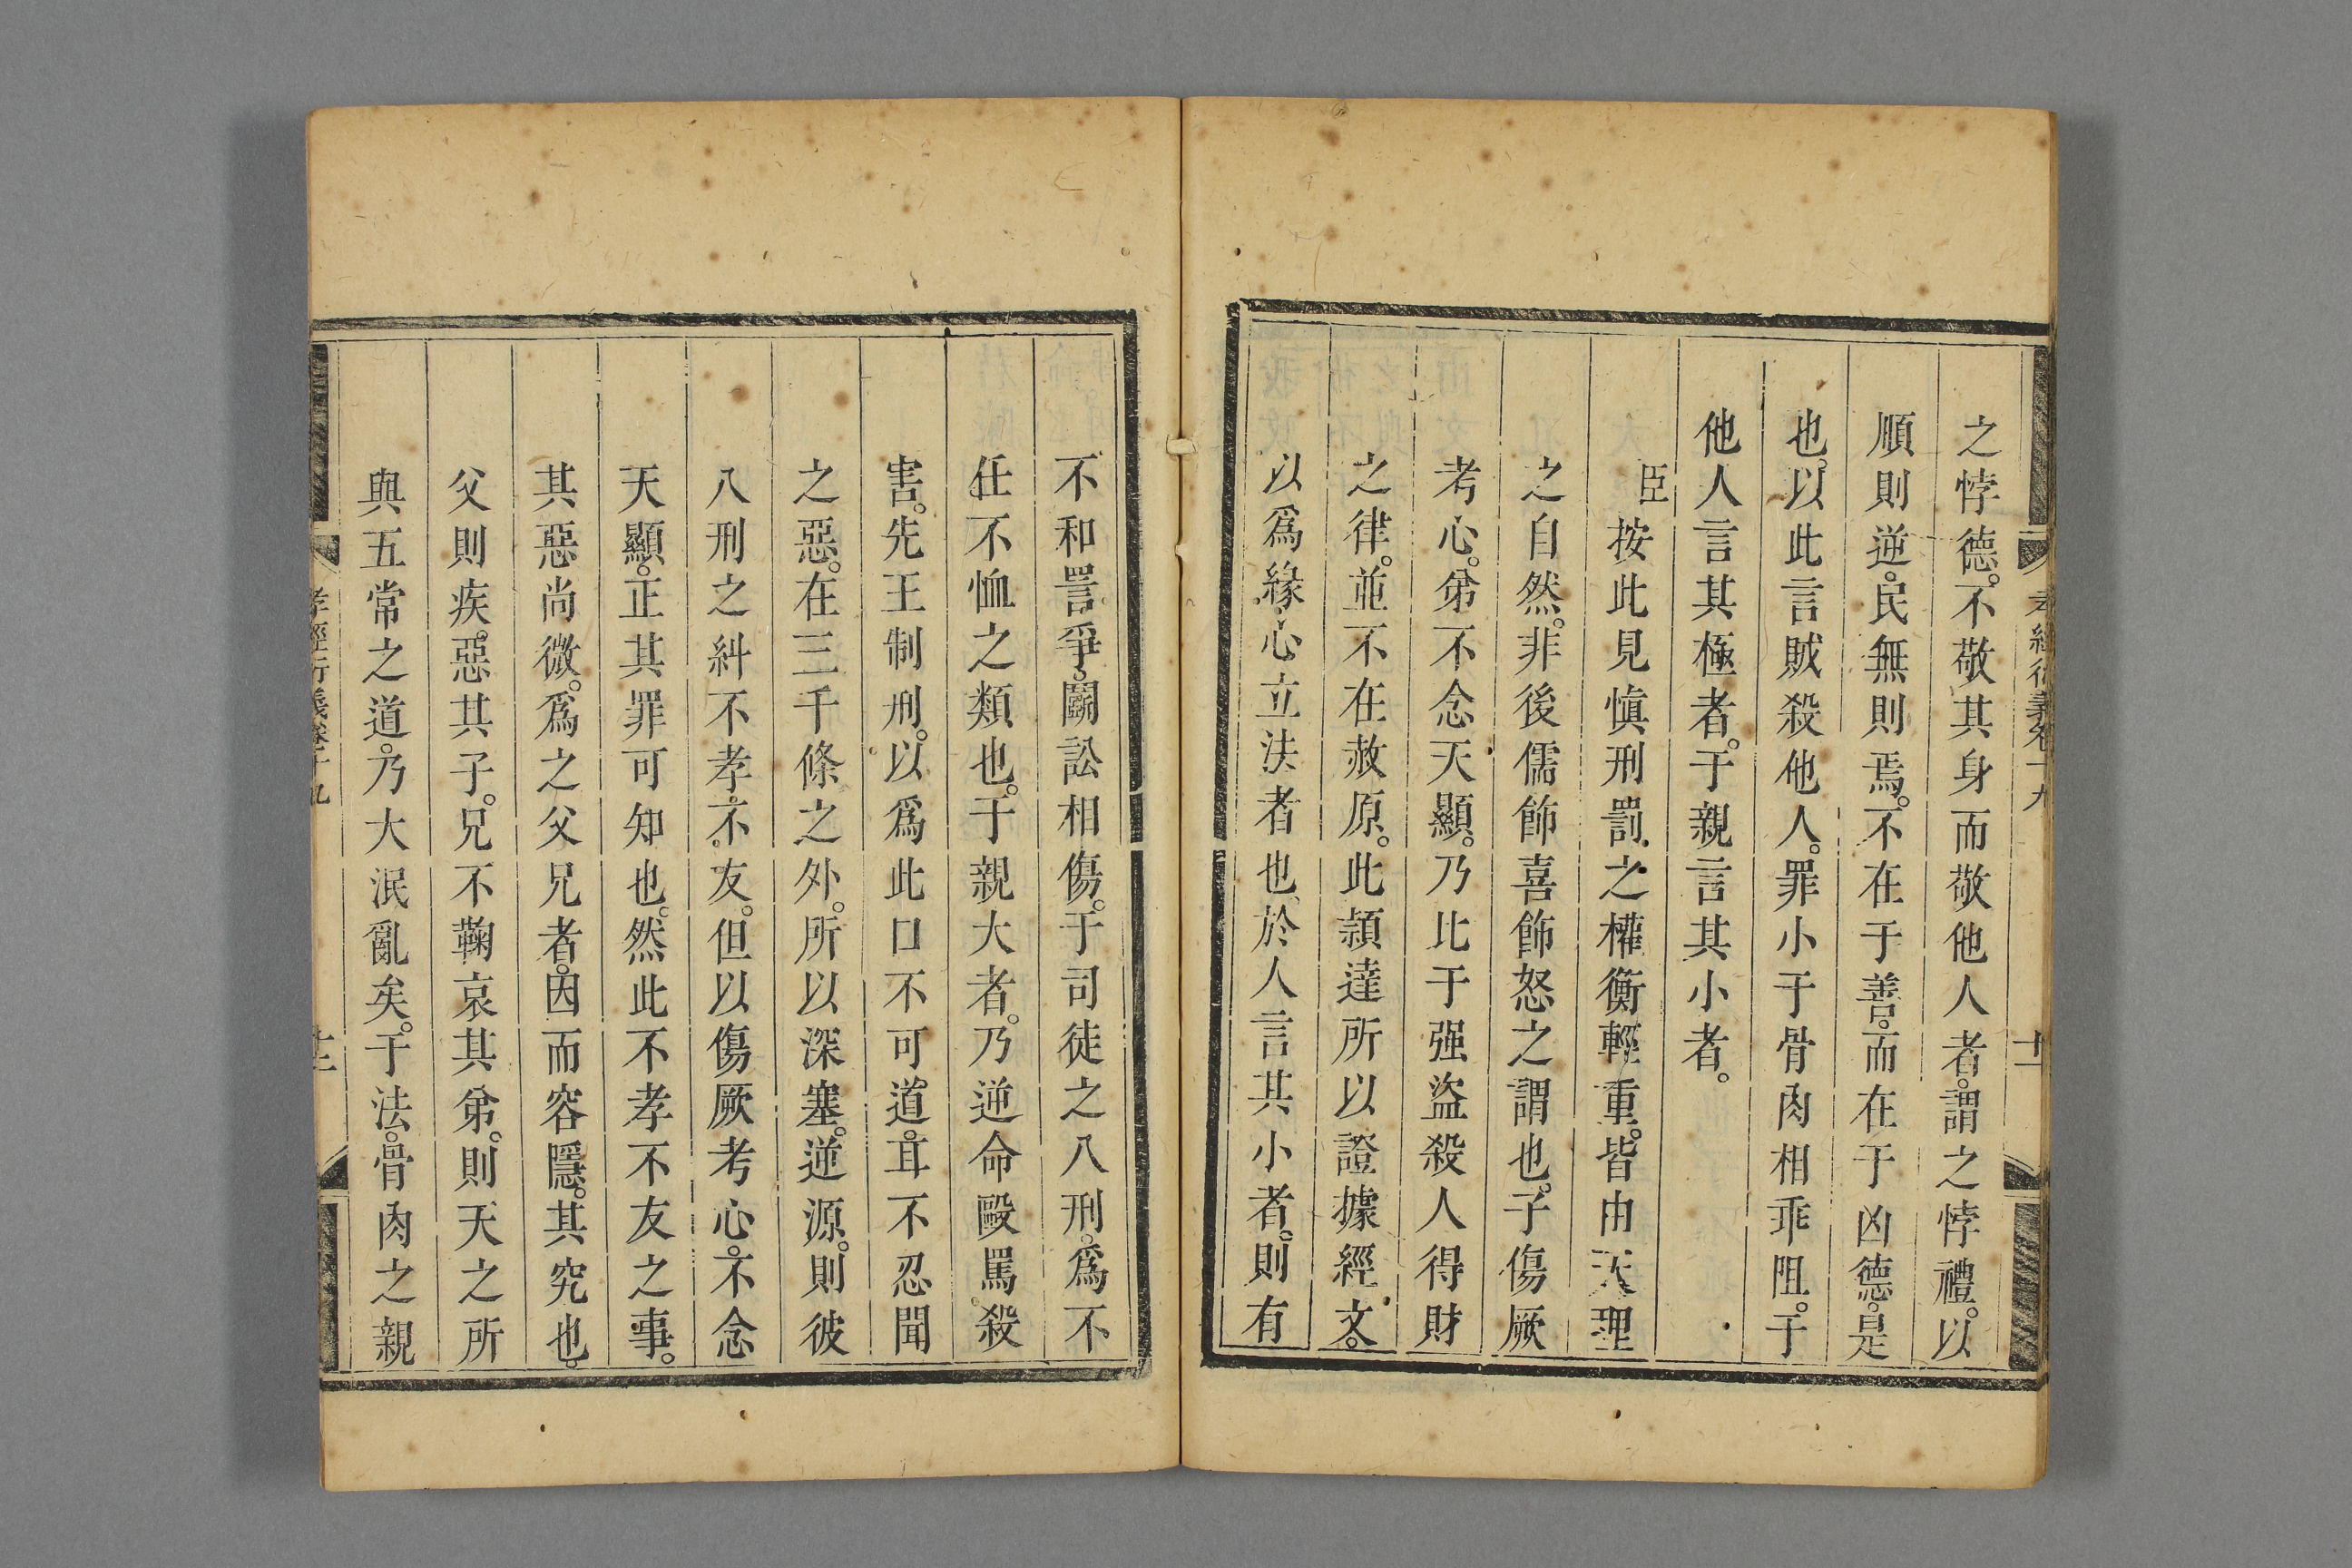 之悖德。不敬其身而敬他人者。謂之悖禮。以
順則逆。民無則焉。不在于善。而在于凶德。是
也。以此言賊殺他人。罪小于骨肉相乖阻。于
他人言其極者。于親言其小者。
臣按此見愼刑罰之權衡輕重。皆由天理
之自然。非後儒飾喜飾怒之謂也。子傷厥
考心。弟不念天顯。乃比于强盜殺人得財
之律。並不在赦原。此頴達所以證據經文。
以爲緣心立法者也。於人言其小者。則有
不和詈爭。鬬訟相傷。于司徒之八刑。爲不
任不恤之類也。于親大者。乃逆命毆罵殺
害。先王制刑。以爲此口不可道。耳不忍聞
之惡。在三千條之外。所以深塞逆源。則彼
八刑之糾不孝不友。但以傷厥考心。不念
天顯。正其罪可知也。然此不孝不友之事。
其惡尚微。爲之父兄者。因而容隱。其究也。
父則疾惡其子。兄不鞠哀其弟。則天之所
與五常之道。乃大泯亂矣。于法。骨肉之親
孝經衍義卷十九